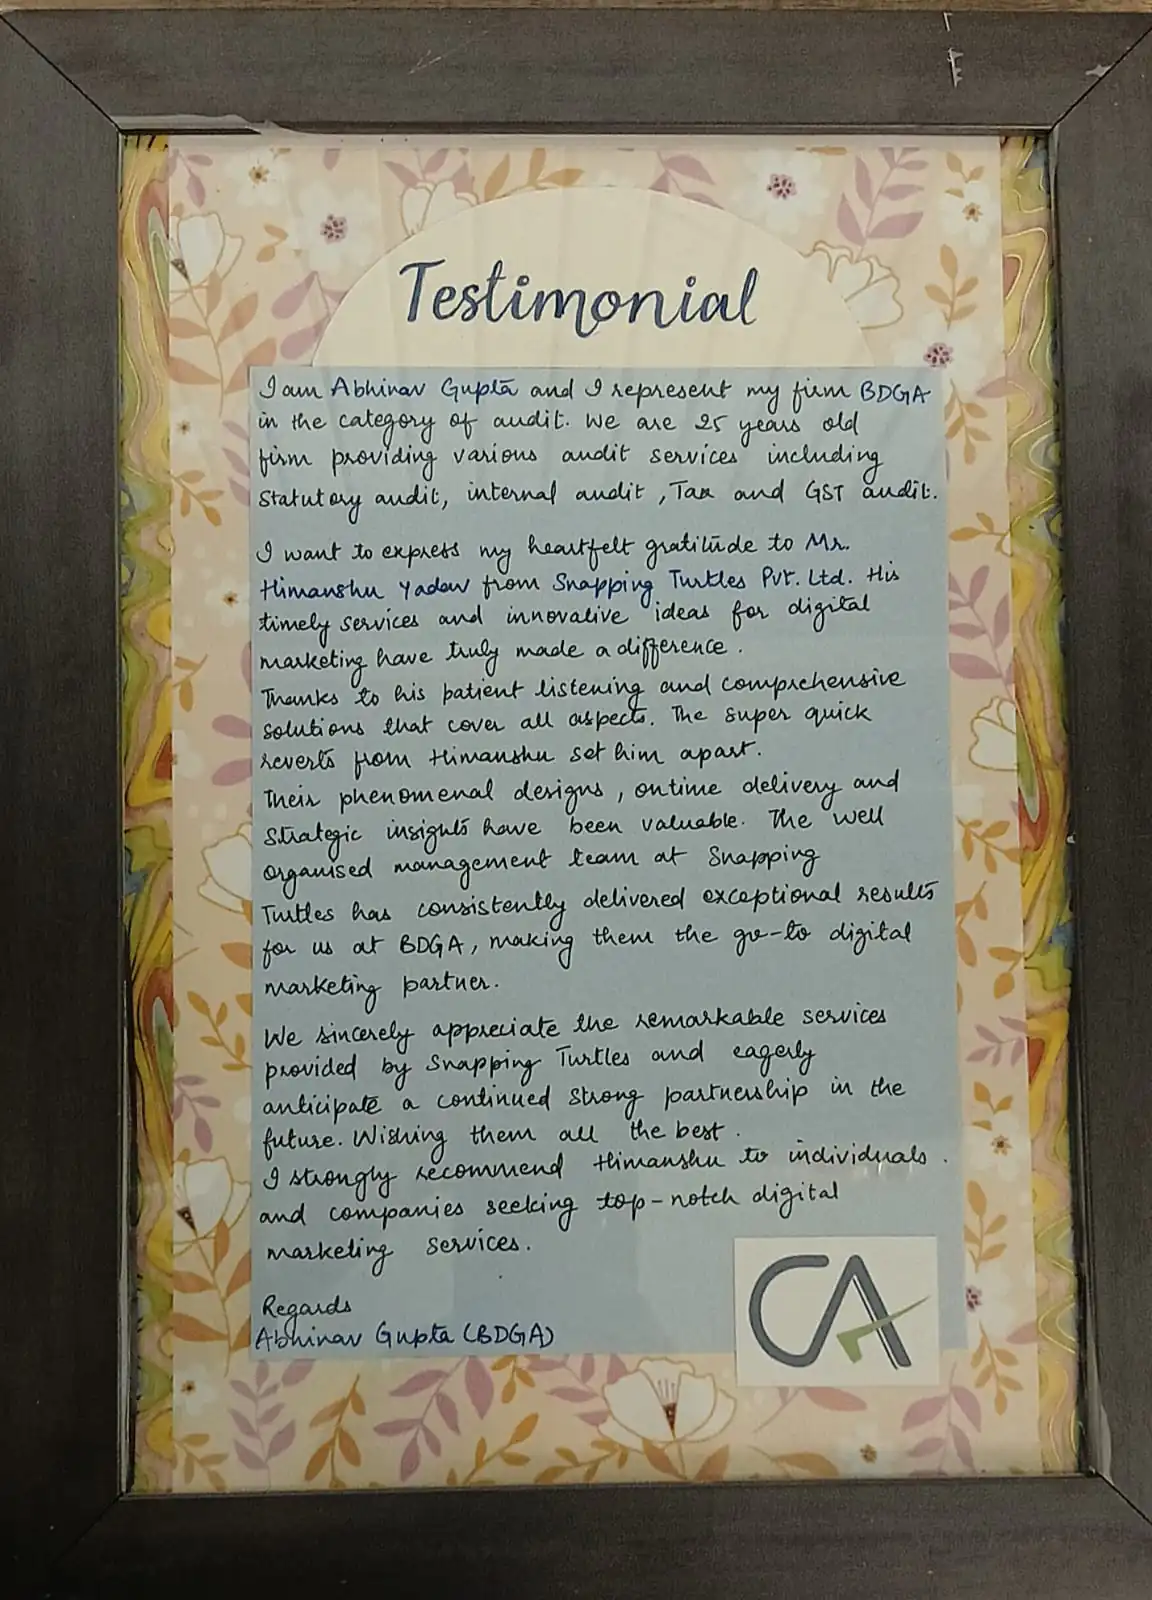 Testimonial
I am Abhinav Gupta and I represent my firm BDGA
in the category of audit. We are 25 years old
firm providing various audit services including
Statutory audit, internal audit, Tax and GST audit.
I want to express my heartfelt gratitude to Mr.
Himanshu Yadav from Snapping Turtles Pvt. Ltd. His
timely services and innovative ideas for digital
marketing have truly made a difference.
Thanks to his patient listening and comprehensive
solutions that cover all aspects. The super quick
reverts from Himanshu set him apart.
Their phenomenal designs, ontime delivery and
Strategic insights have been valuable. The well
organised management team at Snapping
Turtles has consistently delivered exceptional results
for us at BDGA, making them the go-to digital
marketing partner.
We sincerely appreciate the remarkable services
provided by Snapping Turtles and eagerly
anticipate a continued strong partnership in the
future. Wishing them all the best.
I strongly recommend Himanshu to individuals.
and companies seeking top-notch digital
marketing services.
Regards
Abhinav Gupta (BDGA)
CA